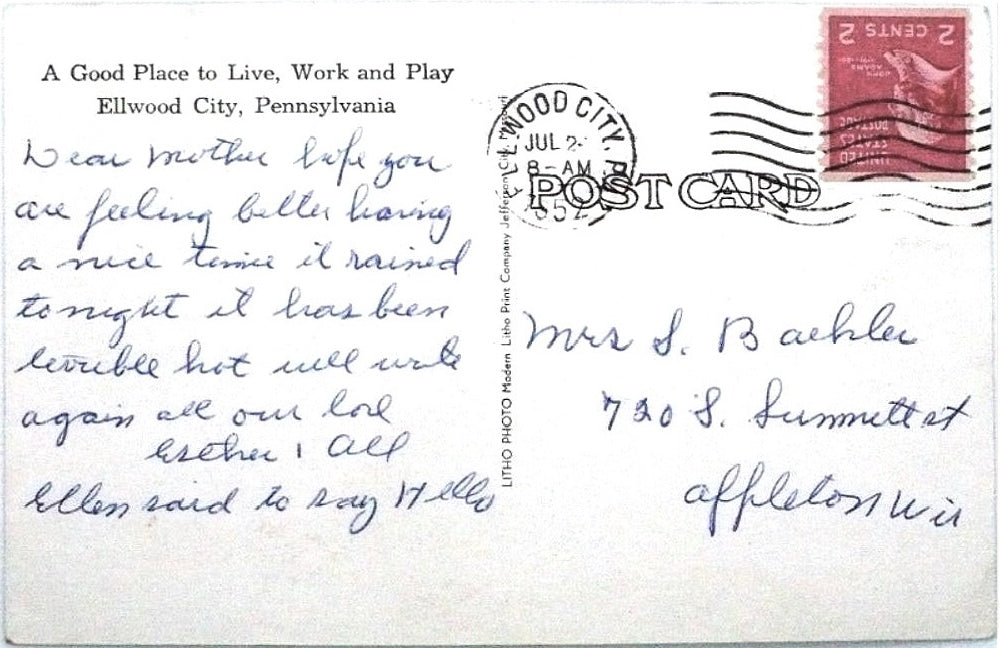 A Good Place to Live, Work and Play
Ellwood City, Pennsylvania
Dear Mother hope you
are feeling better having
a nice time it rained
tonight it has been
terrible hot will write
again all our love
Esther & All
Ellen said to say Hello
LITHO PHOTO Modern Litho Print Company Jefferson City, Missouri
ELLWOOD CITY, PA.
JUL 2
8 - AM
1952
POST CARD
2 CENTS 2
JOHN ADAMS
UNITED
STATES
POSTAGE
Mrs S. Baehler
720 S. Summett st
Appleton Wis